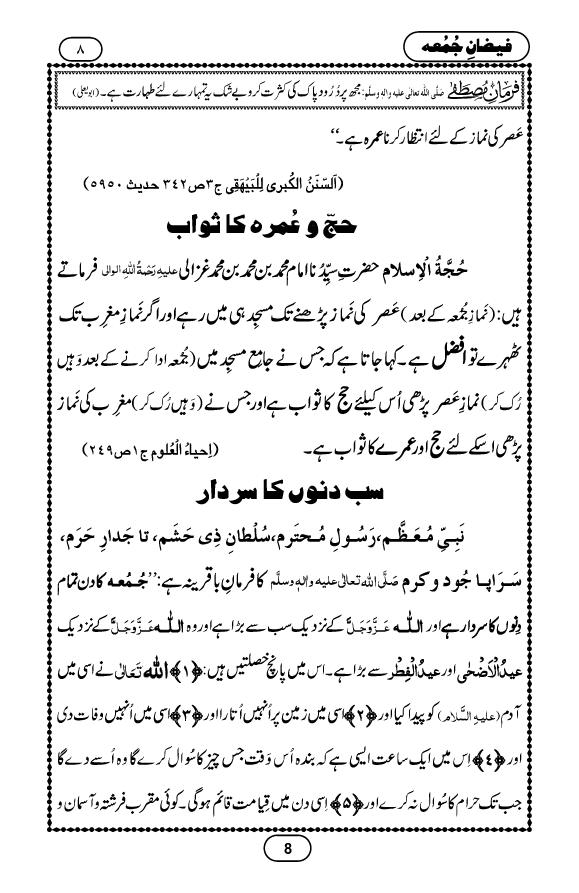 فیضانِ جُمُعہ
۸
فرمانِ مصطفٰے صلَّی اللہ تعالٰی علیہ واٰلہٖ وسلَّم: مجھ پر دُرُود پاک کی کثرت کرو بے شک یہ تمہارے لئے طہارت ہے۔ (ابویعلی)
عَصر کی نماز کے لئے انتظار کرنا عمرہ ہے۔‘‘
(اَلسّنَنُ الکُبریٰ لِلْبَیْہَقِی ج۳ص۳۴۲ حدیث ۵۹۵۰)
حجّ و عُمرہ کا ثواب
حُجَّۃُ الْاِسلام حضرتِ سیِّدُنا امام محمد بن محمد بن محمد غزالی علیہ رَحْمَۃُ اللہِ الوالی فرماتے
ہیں: (نَمازِ جُمعہ کے بعد) عَصر کی نَماز پڑھنے تک مسجِد ہی میں رہے اور اگر نَمازِ مغرِب تک
ٹھہرے تو افضل ہے۔ کہا جاتا ہے کہ جس نے جامع مسجِد میں (جُمعہ ادا کرنے کے بعد وَہیں
رُک کر) نمازِ عَصر پڑھی اُس کیلئے حج کا ثواب ہے اور جس نے (وَہیں رُک کر) مغرِب کی نَماز
پڑھی اسکے لئے حج اور عمرے کا ثواب ہے۔ (اِحیاءُ الْعُلوم ج۱ص۲۴۹)
سب دنوں کا سردار
نَبِیِّ مُعَظَّم، رَسُولِ مُحترَم، سُلْطانِ ذِی حَشَم، تا جدارِ حَرَم،
سَراپا جُود و کرم صَلَّی اللہ تعالٰی علیہ واٰلہٖ وسلَّم کا فرمانِ باقرینہ ہے: ’’جُمُعہ کا دن تمام
دِنوں کا سردار ہے اور اللہ عَزَّوَجَلَّ کے نزدیک سب سے بڑا ہے اور وہ اللہ عَزَّوَجَلَّ کے نزدیک
عیدُالْاَضْحٰی اور عیدُالْفِطْر سے بڑا ہے۔ اس میں پانچ خصلتیں ہیں: ﴿۱﴾ اللہ تَعَالٰی نے اسی میں
آدم (علیہِ السَّلام) کو پیدا کیا اور ﴿۲﴾ اسی میں زمین پر اُنہیں اُتارا اور ﴿۳﴾ اسی میں اُنہیں وفات دی
اور ﴿۴﴾ اِس میں ایک ساعت ایسی ہے کہ بندہ اُس وَقت جس چیز کا سُوال کرے گا وہ اُسے دے گا
جب تک حرام کا سُوال نہ کرے اور ﴿۵﴾ اِسی دن میں قِیامت قائم ہوگی۔ کوئی مقرب فرشتہ و آسمان و
8